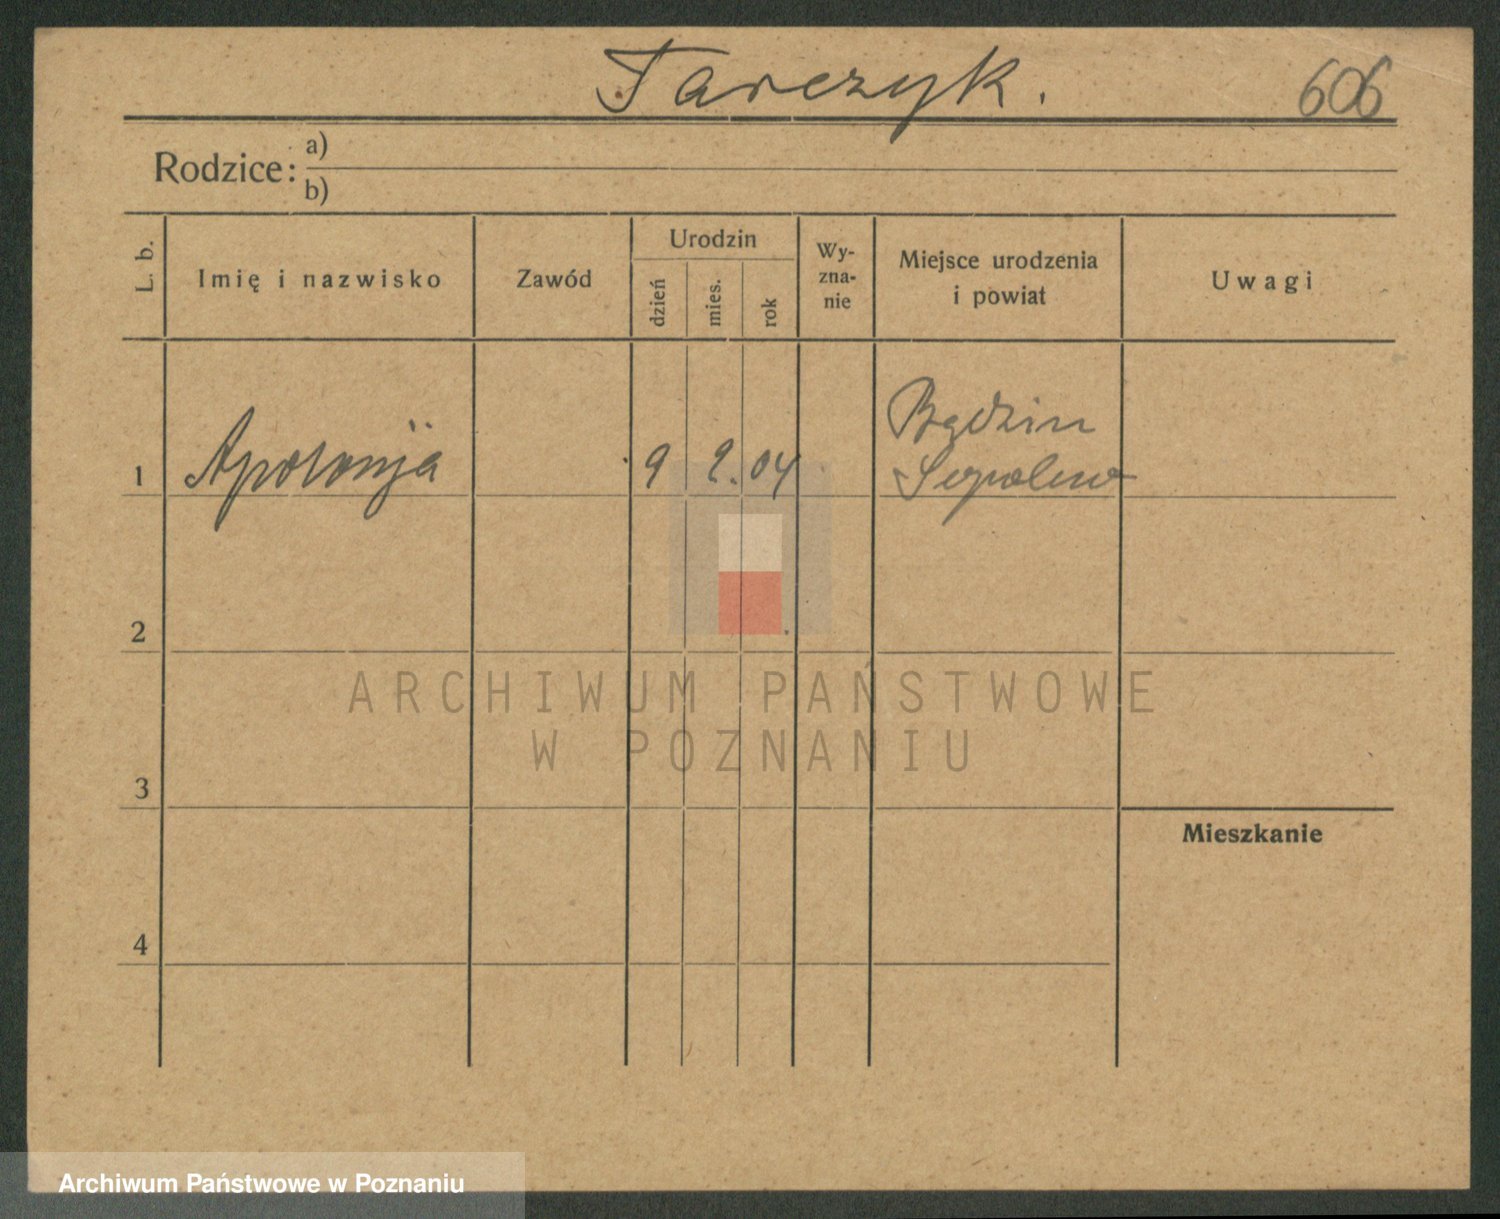 Tarczyk.
606
Rodzice: a)
b)
L. b.
Imię i nazwisko
Zawód
Urodzin
dzień
mies.
rok
Wy-
zna-
nie
Miejsce urodzenia
i powiat
Uwagi
1 Apolonija 9 2. 04 Będzin
2
3
Mieszkanie
4
ARCHIWUM PAŃSTWOWE
W POZNANIU
Archiwum Państwowe w Poznaniu